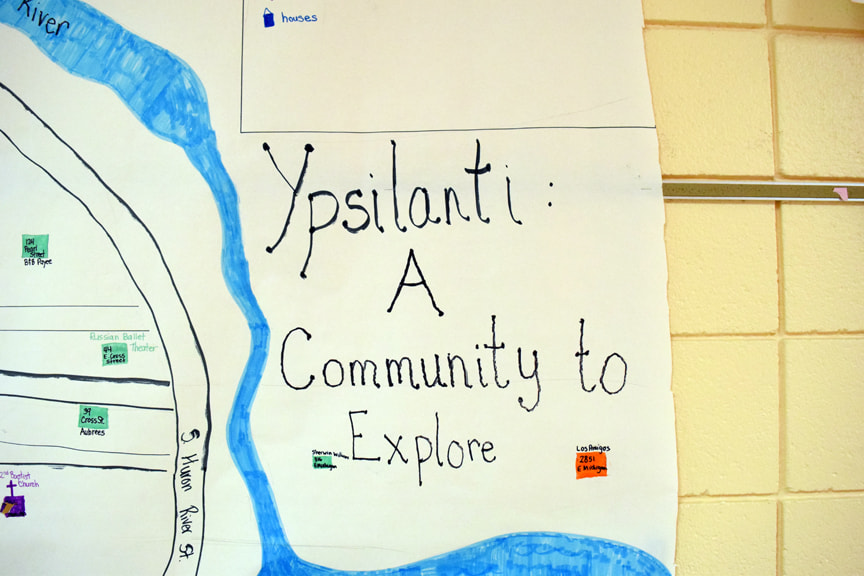 River
houses
Ypsilanti:
A
Community to
Explore
124
Pearl
Street
Russian Ballet
Theater
94
E. Cross
Street
39
Cross St.
Aubrees
2nd Baptist
Church
S. Huron River St.
Sherwin Williams
E Michigan
Los Amigos
E Michigan